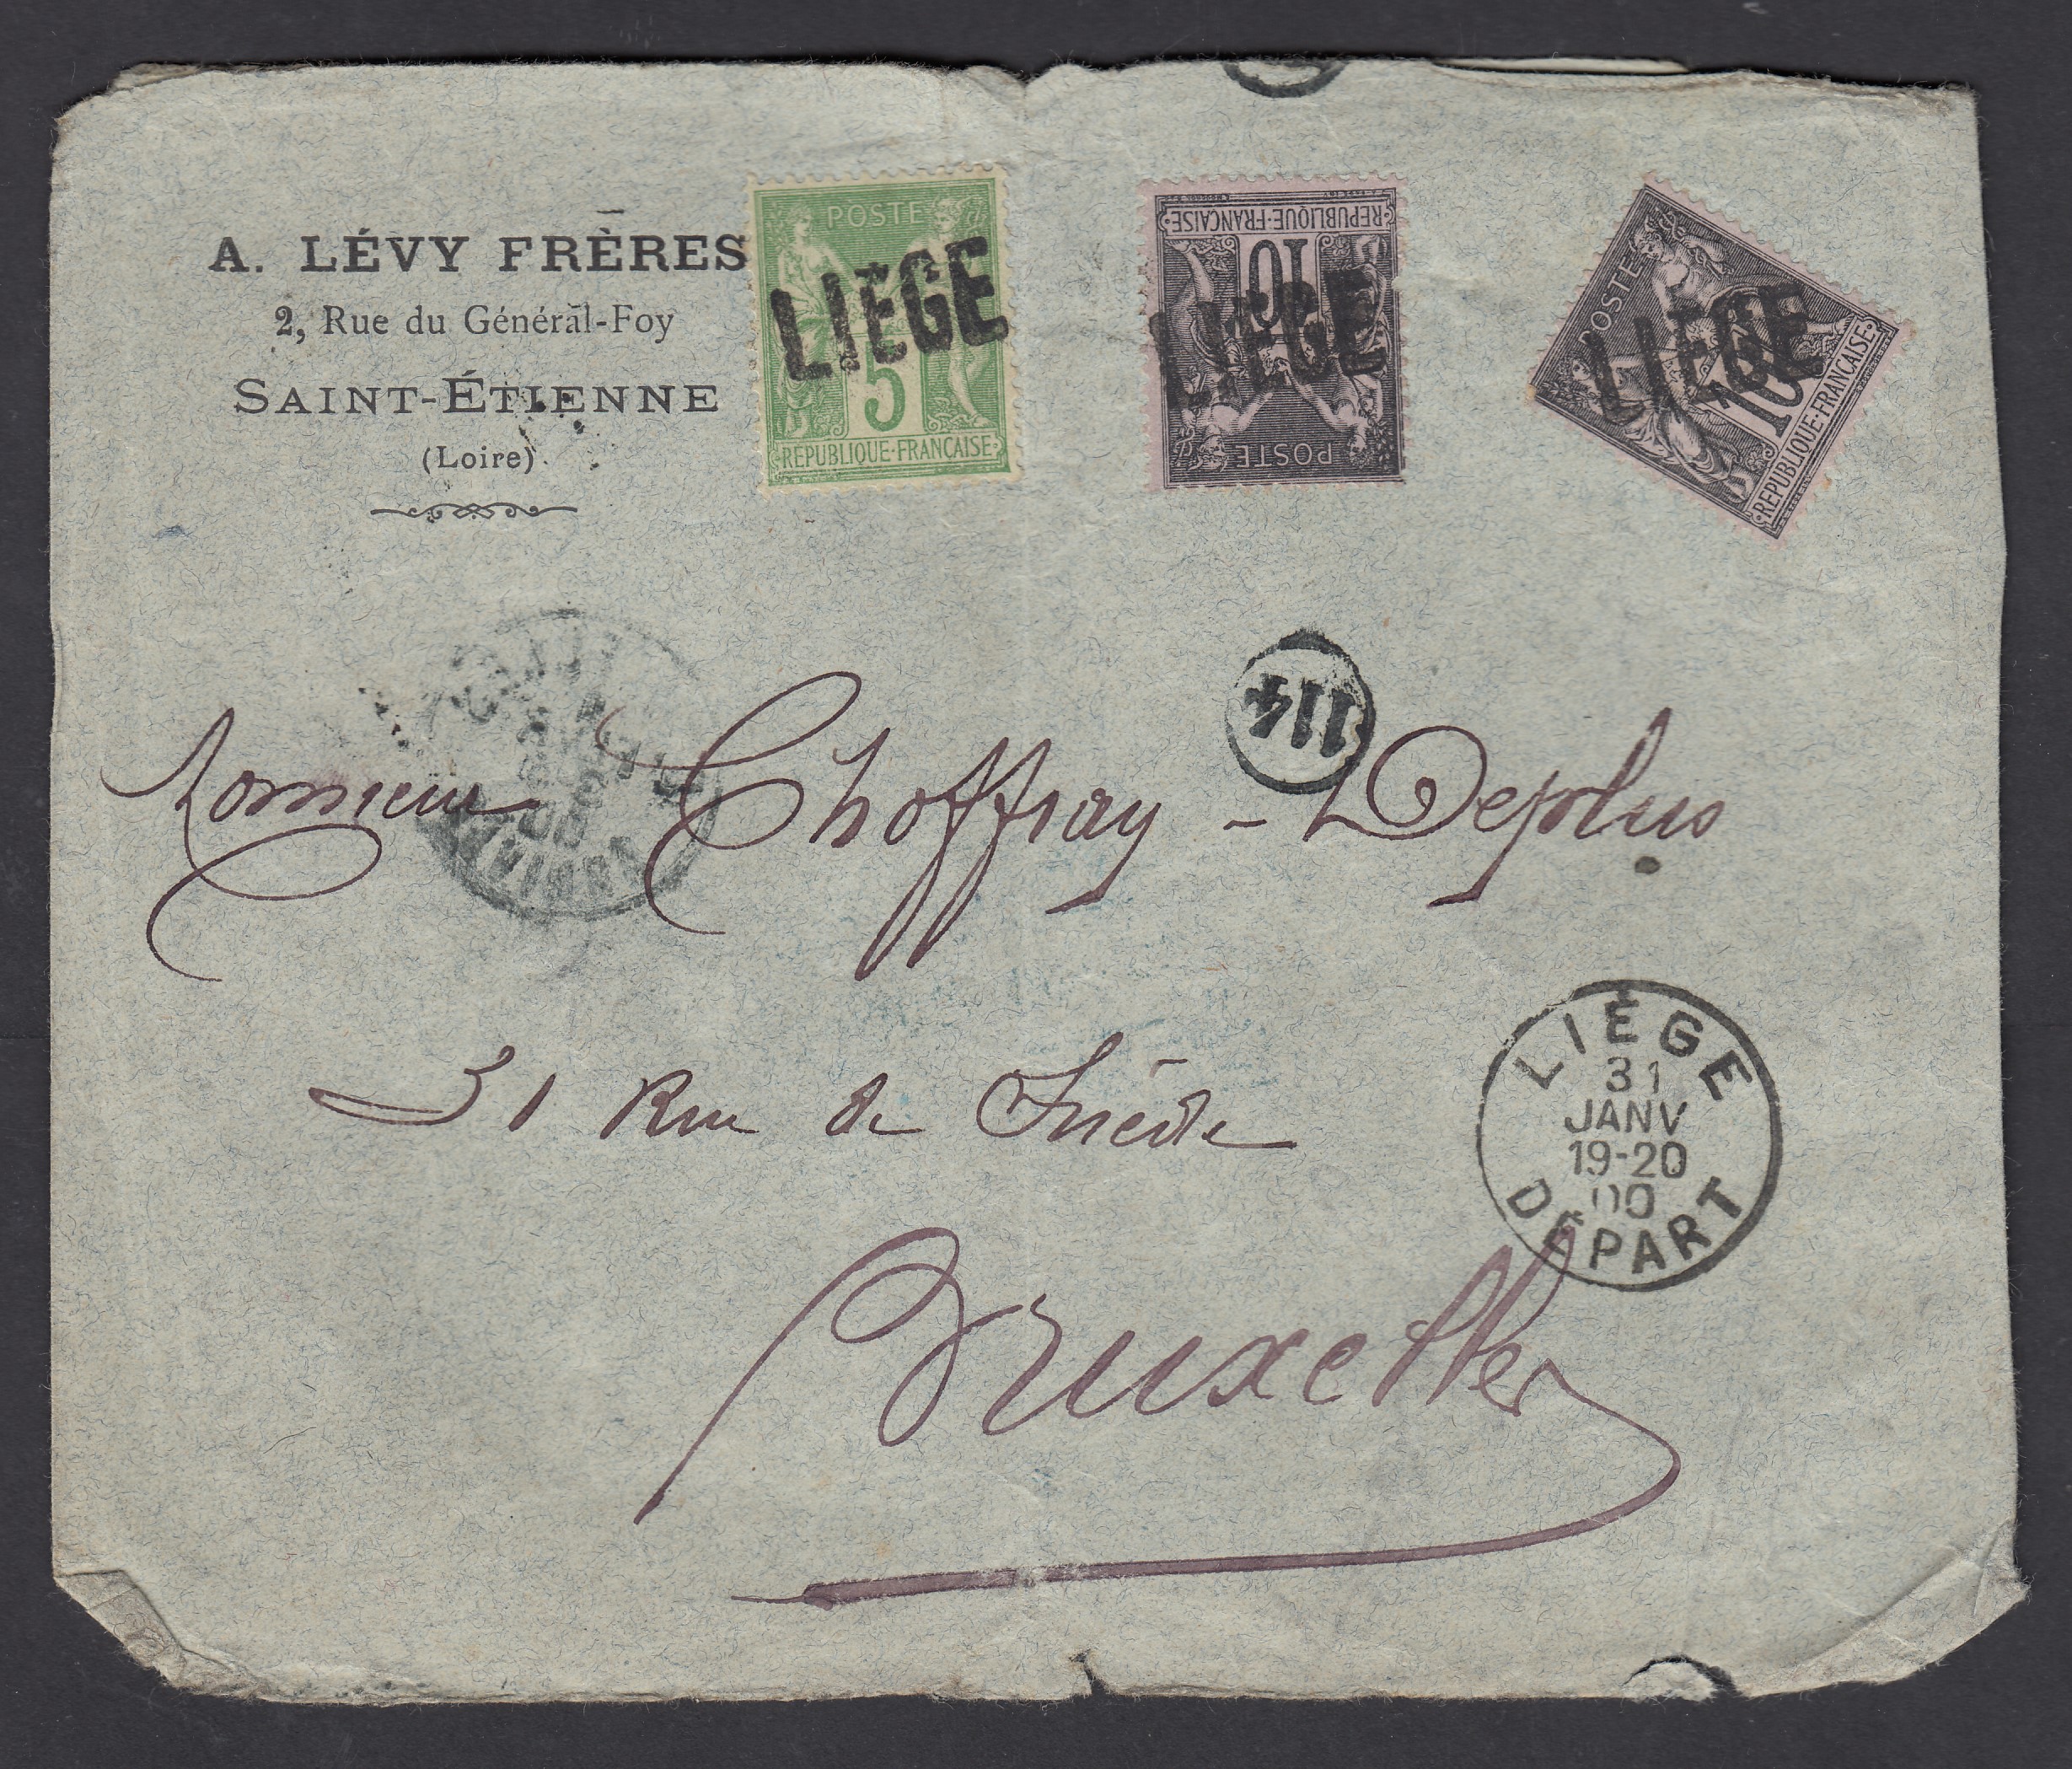 A. LÉVY FRÈRES
2, Rue du Général-Foy
SAINT-ÉTIENNE
(Loire)
POSTE
5
REPUBLIQUE·FRANÇAISE
LIÉGE
REPUBLIQUE·FRANÇAISE
10
POSTE
LIÉGE
POSTE
10
REPUBLIQUE·FRANÇAISE
LIÉGE
114
Monsieur Choffray-Deplus
31 Rue de Suède
Bruxelles
LIÉGE
31
JANV
19-20
00
DÉPART